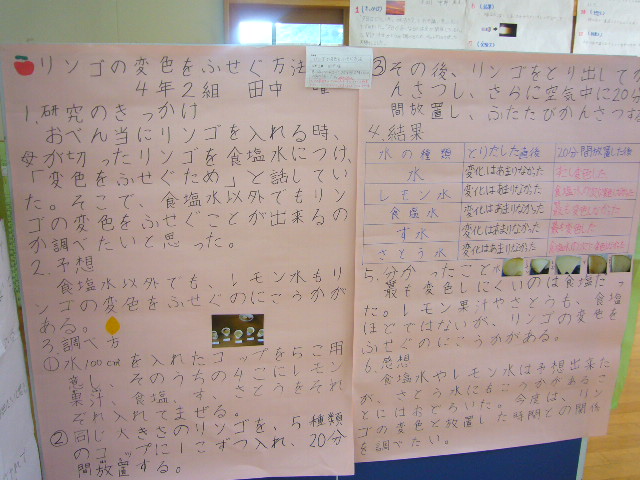 リンゴの変色をふせぐ方法
4年2組 田中
1.研究のきっかけ
おべん当にリンゴを入れる時、
母が切ったリンゴを食塩水につけ、
「変色をふせぐため」と話してい
た。そこで、食塩水以外でもリン
ゴの変色をふせぐことが出来るの
か調べたいと思った。
2.予想
食塩水以外でも、レモン水もリ
ンゴの変色をふせぐのにこうかが
ある。
3.調べ方
①水100cm を入れたコップを5こ用
意し、そのうちの4こにレモン
果汁、食塩、す、さとうをそれ
ぞれ入れてまぜる。
②同じ大きさのリンゴを、5種類
のコップに1こずつ入れ、20分
間放置する。
③その後、リンゴをとり出してか
んさつし、さらに空気中に20分
間放置し、ふたたびかんさつする
4.結果
水の種類 とりだした直後 20分間放置した後
水 変化はあまりなかった 少し変色した
レモン水 変化はあまりなかった
食塩水 変化はあまりなかった
す水 変化はあまりなかった 最も変色した
さとう水 変化はあまりなかった
5.分かったこと
最も変色しにくいのは食塩だっ
た。レモン果汁やさとうも、食塩
ほどではないが、リンゴの変色を
ふせぐのにこうかがある。
6.感想
食塩水やレモン水は予想出来た
が、さとう水にもこうかがあるこ
とにはおどろいた。今度は、リン
ゴの変色と放置した時間との関係
を調べたい。